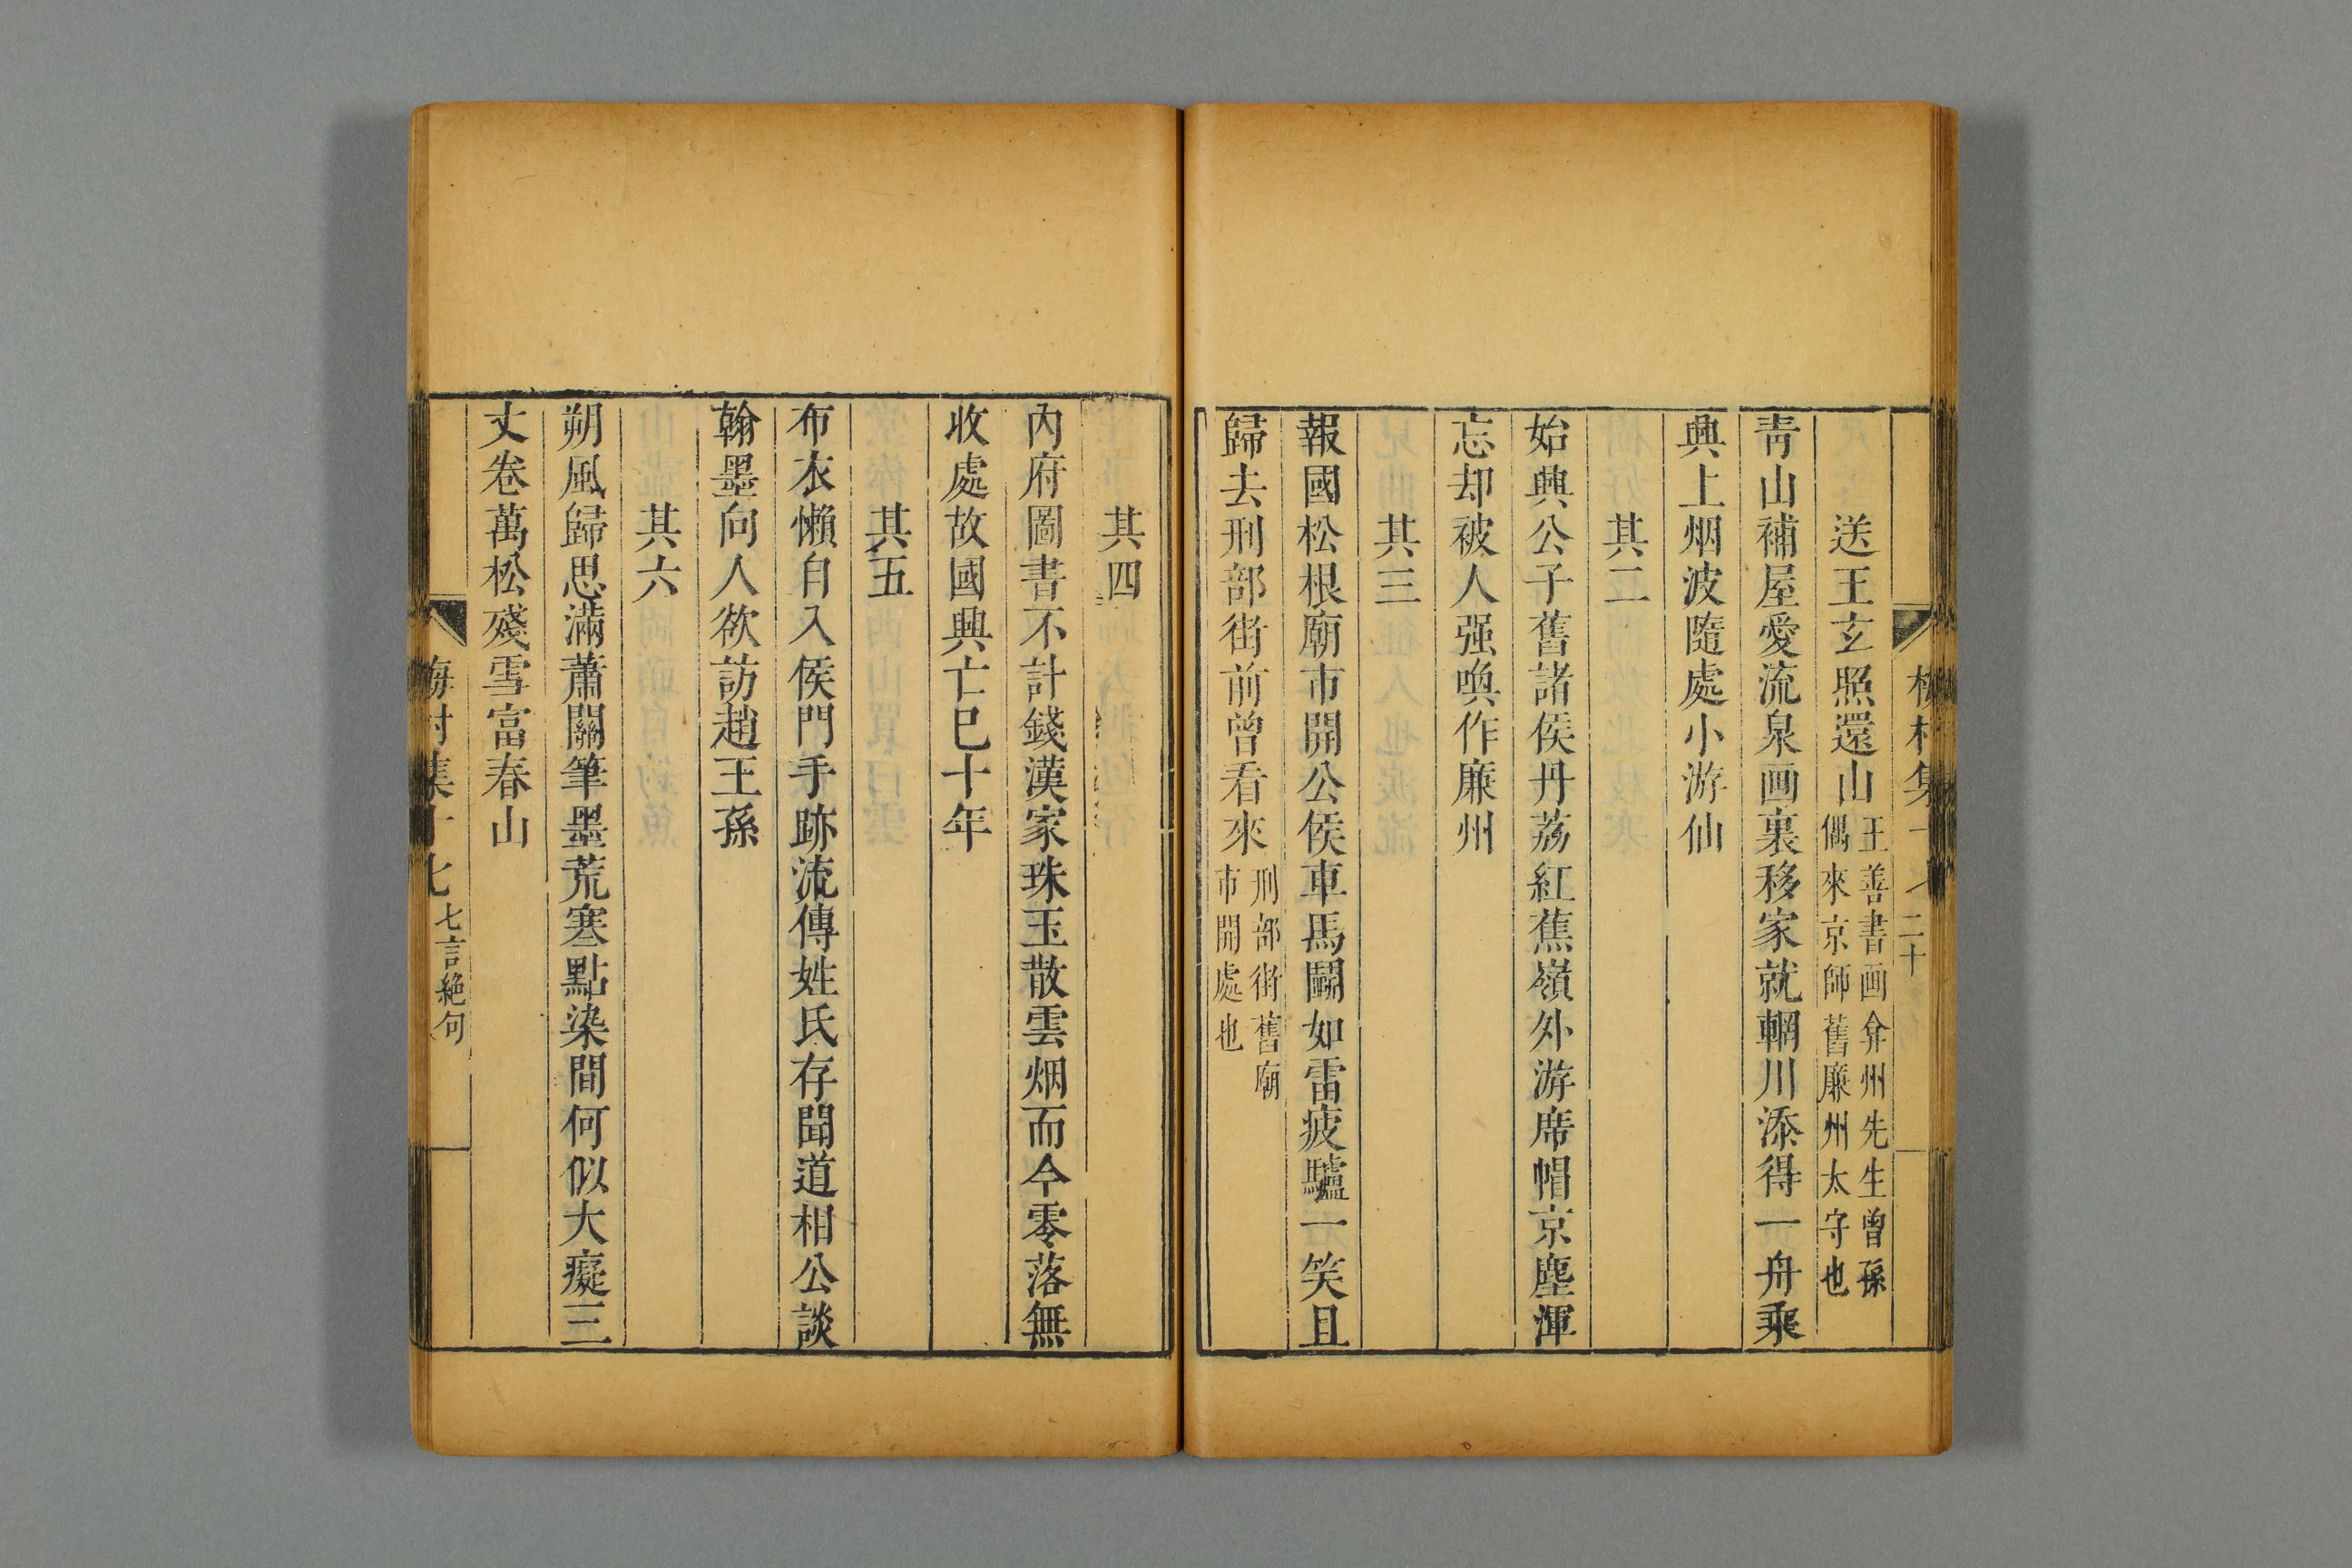 送王玄照還山 王善書画弇州先生曾孫
偶來京師舊廉州太守也
青山補屋愛流泉画裏移家就輞川添得一舟乘
興上烟波隨處小游仙
其二
始興公子舊諸侯丹荔紅蕉嶺外游席帽京塵渾
忘却被人强喚作廉州
其三
報國松根廟市開公侯車馬鬬如雷疲驢一笑且
歸去刑部街前曾看來 刑部街舊廟
市開處也
二十
其四
內府圖書不計錢漢家珠玉散雲烟而今零落無
收處故國興亡巳十年
其五
布衣懶自入侯門手跡流傳姓氏存聞道相公談
翰墨向人欲訪趙王孫
其六
朔風歸思滿蕭關筆墨荒寒點染間何似大癡三
丈卷萬松殘雪富春山
梅村集十七 七言絶句